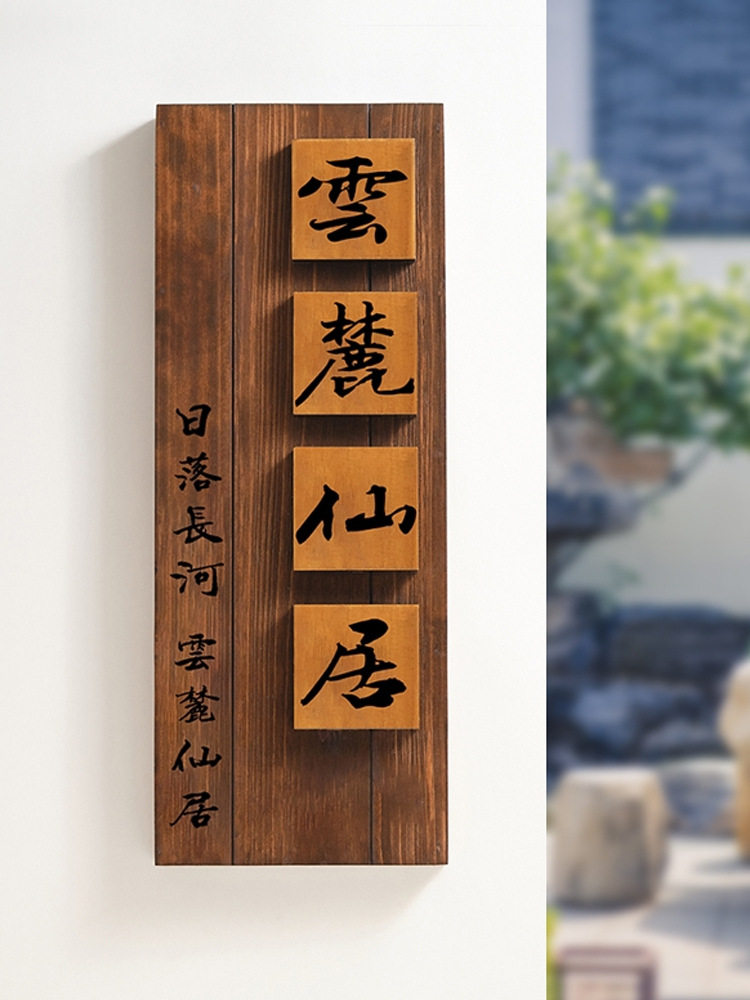 雲麓仙居
日落長河 雲麓仙居